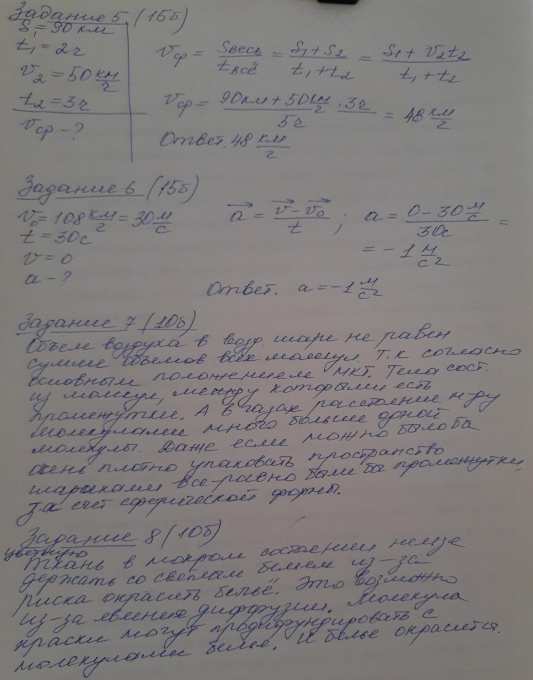 Задание 5 (15б)
S₁ = 90 км
t₁ = 2ч
v₂ = 50 км/ч
t₂ = 3ч
vср - ?
vср = Sвесь/tвсё = (S₁+S₂)/(t₁+t₂) = (S₁+v₂t₂)/(t₁+t₂)
vср = (90км + 50 км/ч · 3ч)/5ч = 48 км/ч
Ответ. 48 км/ч
Задание 6 (15б)
v₀ = 108 км/ч = 30 м/с
t = 30с
v = 0
a - ?
a = (v - v₀)/t ; a = (0 - 30 м/с)/30с =
= -1 м/с²
Ответ. a = -1 м/с²
Задание 7 (10б)
Объем воздуха в возд. шаре не равен
сумме объемов всех молекул. Т.к согласно
основным положением МКТ, Тела сост.
из молекул, между которыми есть
промежутки. А в газах расстоение м-ду
молекулами много больше одной
молекулы. Даже если можно было ба
очень плотно упаковать пространство
шариками все-равно были бы промежутки,
за счет сферической формы.
Задание 8 (10б)
цветную
Ткань в мокром состоянии нельзя
держать со светлам бельем из-за
риска окрасить бельё. Это возможно
из-за явления диффузии. Молекула
краски могут продифундировать с
молекулами белье. И белье окрасится.